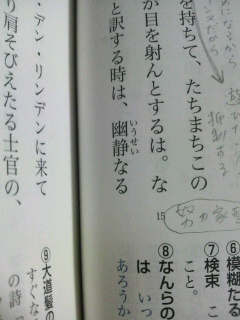 を持ちて、たちまちこの
か目を射んとするは。な
と訳する時は、幽静なる
いうせい
抑制する
15
努力家
⑥模糊たる
⑦検束 こ
こと。
⑧なんらの
は いっ
あろうか
・デン・リンデンに来て
り肩そびえたる士官の、
⑨大道髪の
すぐな
の詩